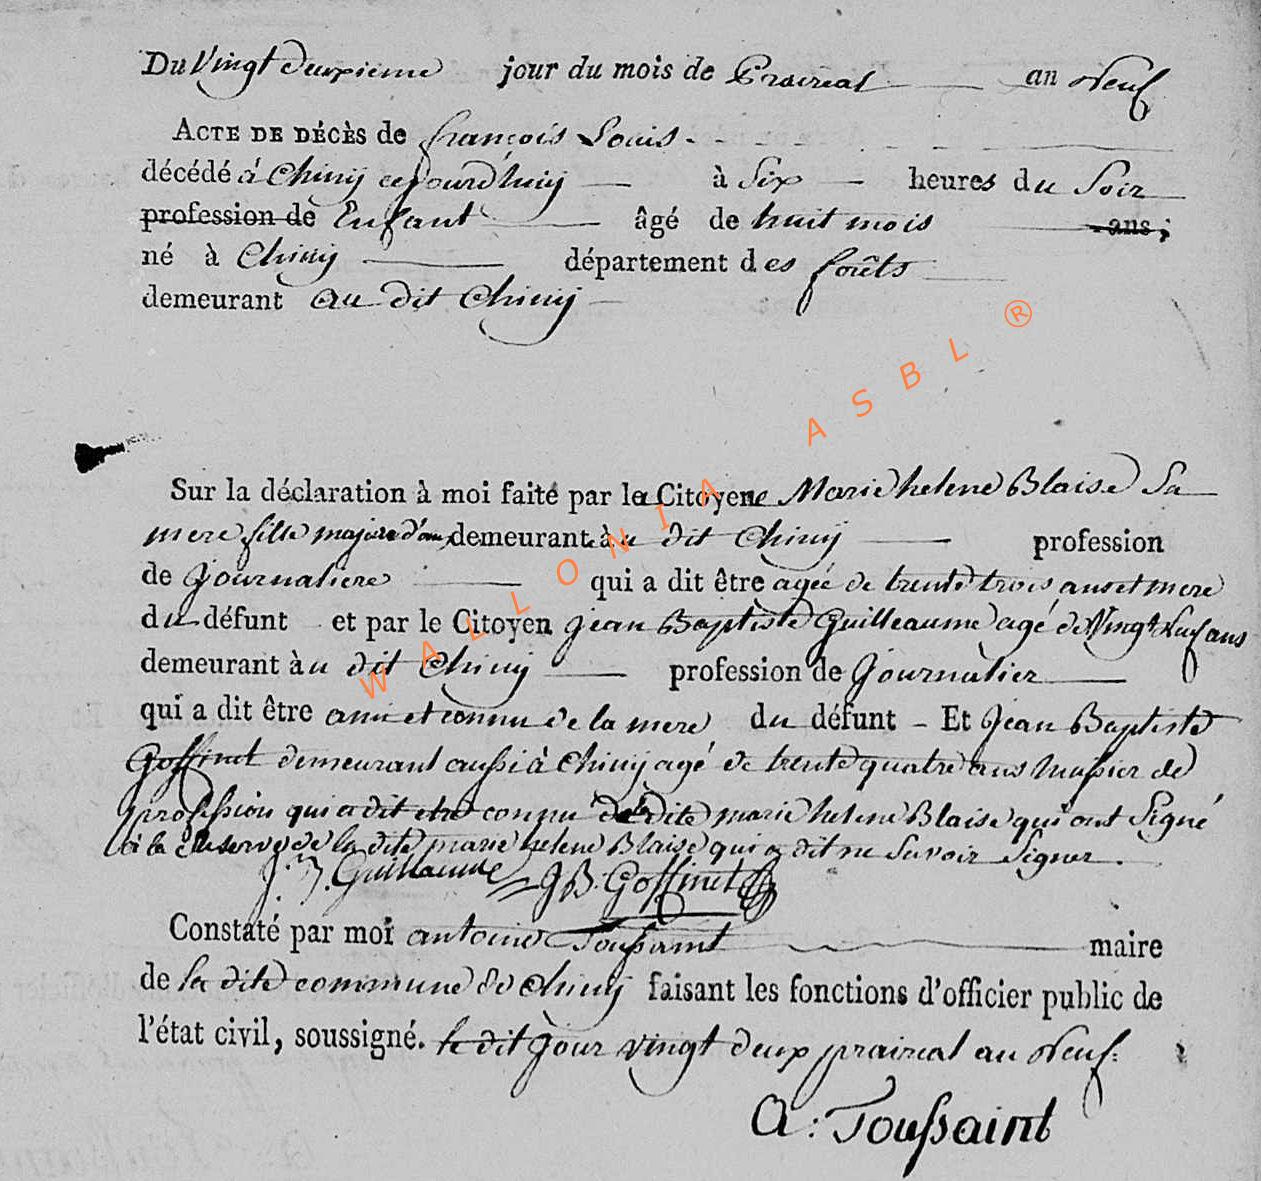 Du Vingt deuxieme jour du mois de Praireal an Neuf
ACTE DE DÉCÈS de françois Louis
décédé à Chiny cejourd'huy à Six heures du Soir
profession de Enfant âgé de huit mois ans;
né à Chiny département des forêts
demeurant au dit Chiny
Sur la déclaration à moi faite par la Citoyene Marie helene Blaise Sa
mere fille majeure demeurante àu dit Chiny profession
de Journaliere qui a dit être agée de trente trois ans et mere
du défunt et par le Citoyen Jean Baptiste Guilleaume agé de Vingt neuf ans
demeurant àu dit Chiny profession de Journalier
qui a dit être ami et connu de la mere du défunt - Et Jean Baptiste
Goffinet demeurant aussi à Chiny agé de trente quatre ans hussier de
profession qui a dit etre connu de dite marie helene Blaise qui ont Signé
à la Reserve de la dite marie helene Blaise qui a dit ne Savoir Signer.
J. B. Guillaume J B. Goffinet
Constaté par moi antoine Toussaint maire
de la dite commune de Chiny faisant les fonctions d'officier public de
l'état civil, soussigné. le dit Jour vingt deux praireal an Neuf.
A: Toussaint
WALLONIA ASBL ®